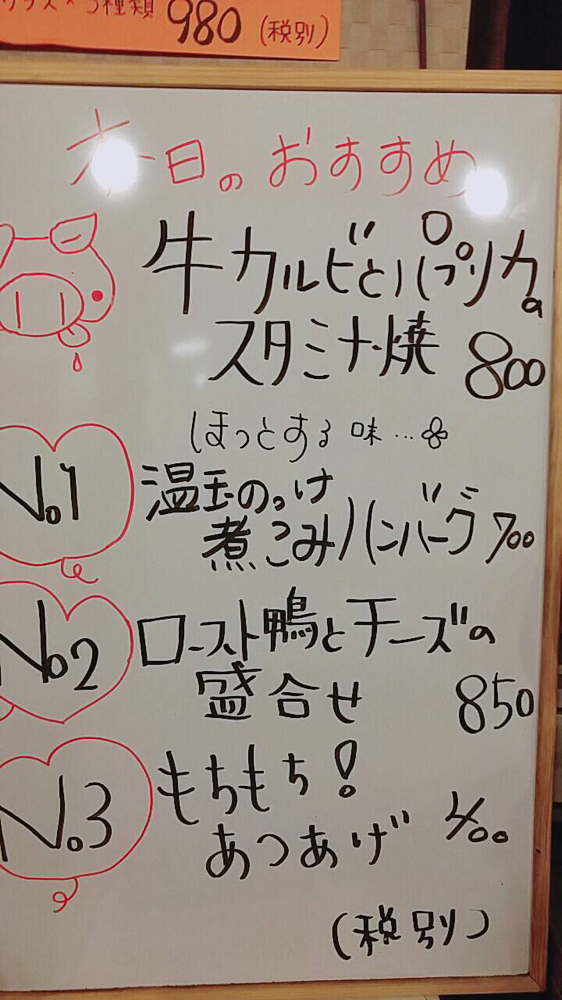 グラス×3種類 980 (税別)
本日のおすすめ
牛カルビとパプリカの
スタミナ焼 800
ほっとする味…
No.1
温玉のっけ
煮こみハンバーグ 700
No.2
ロースト鴨とチーズの
盛合せ 850
No.3
もちもち!
あつあげ 400
(税別)